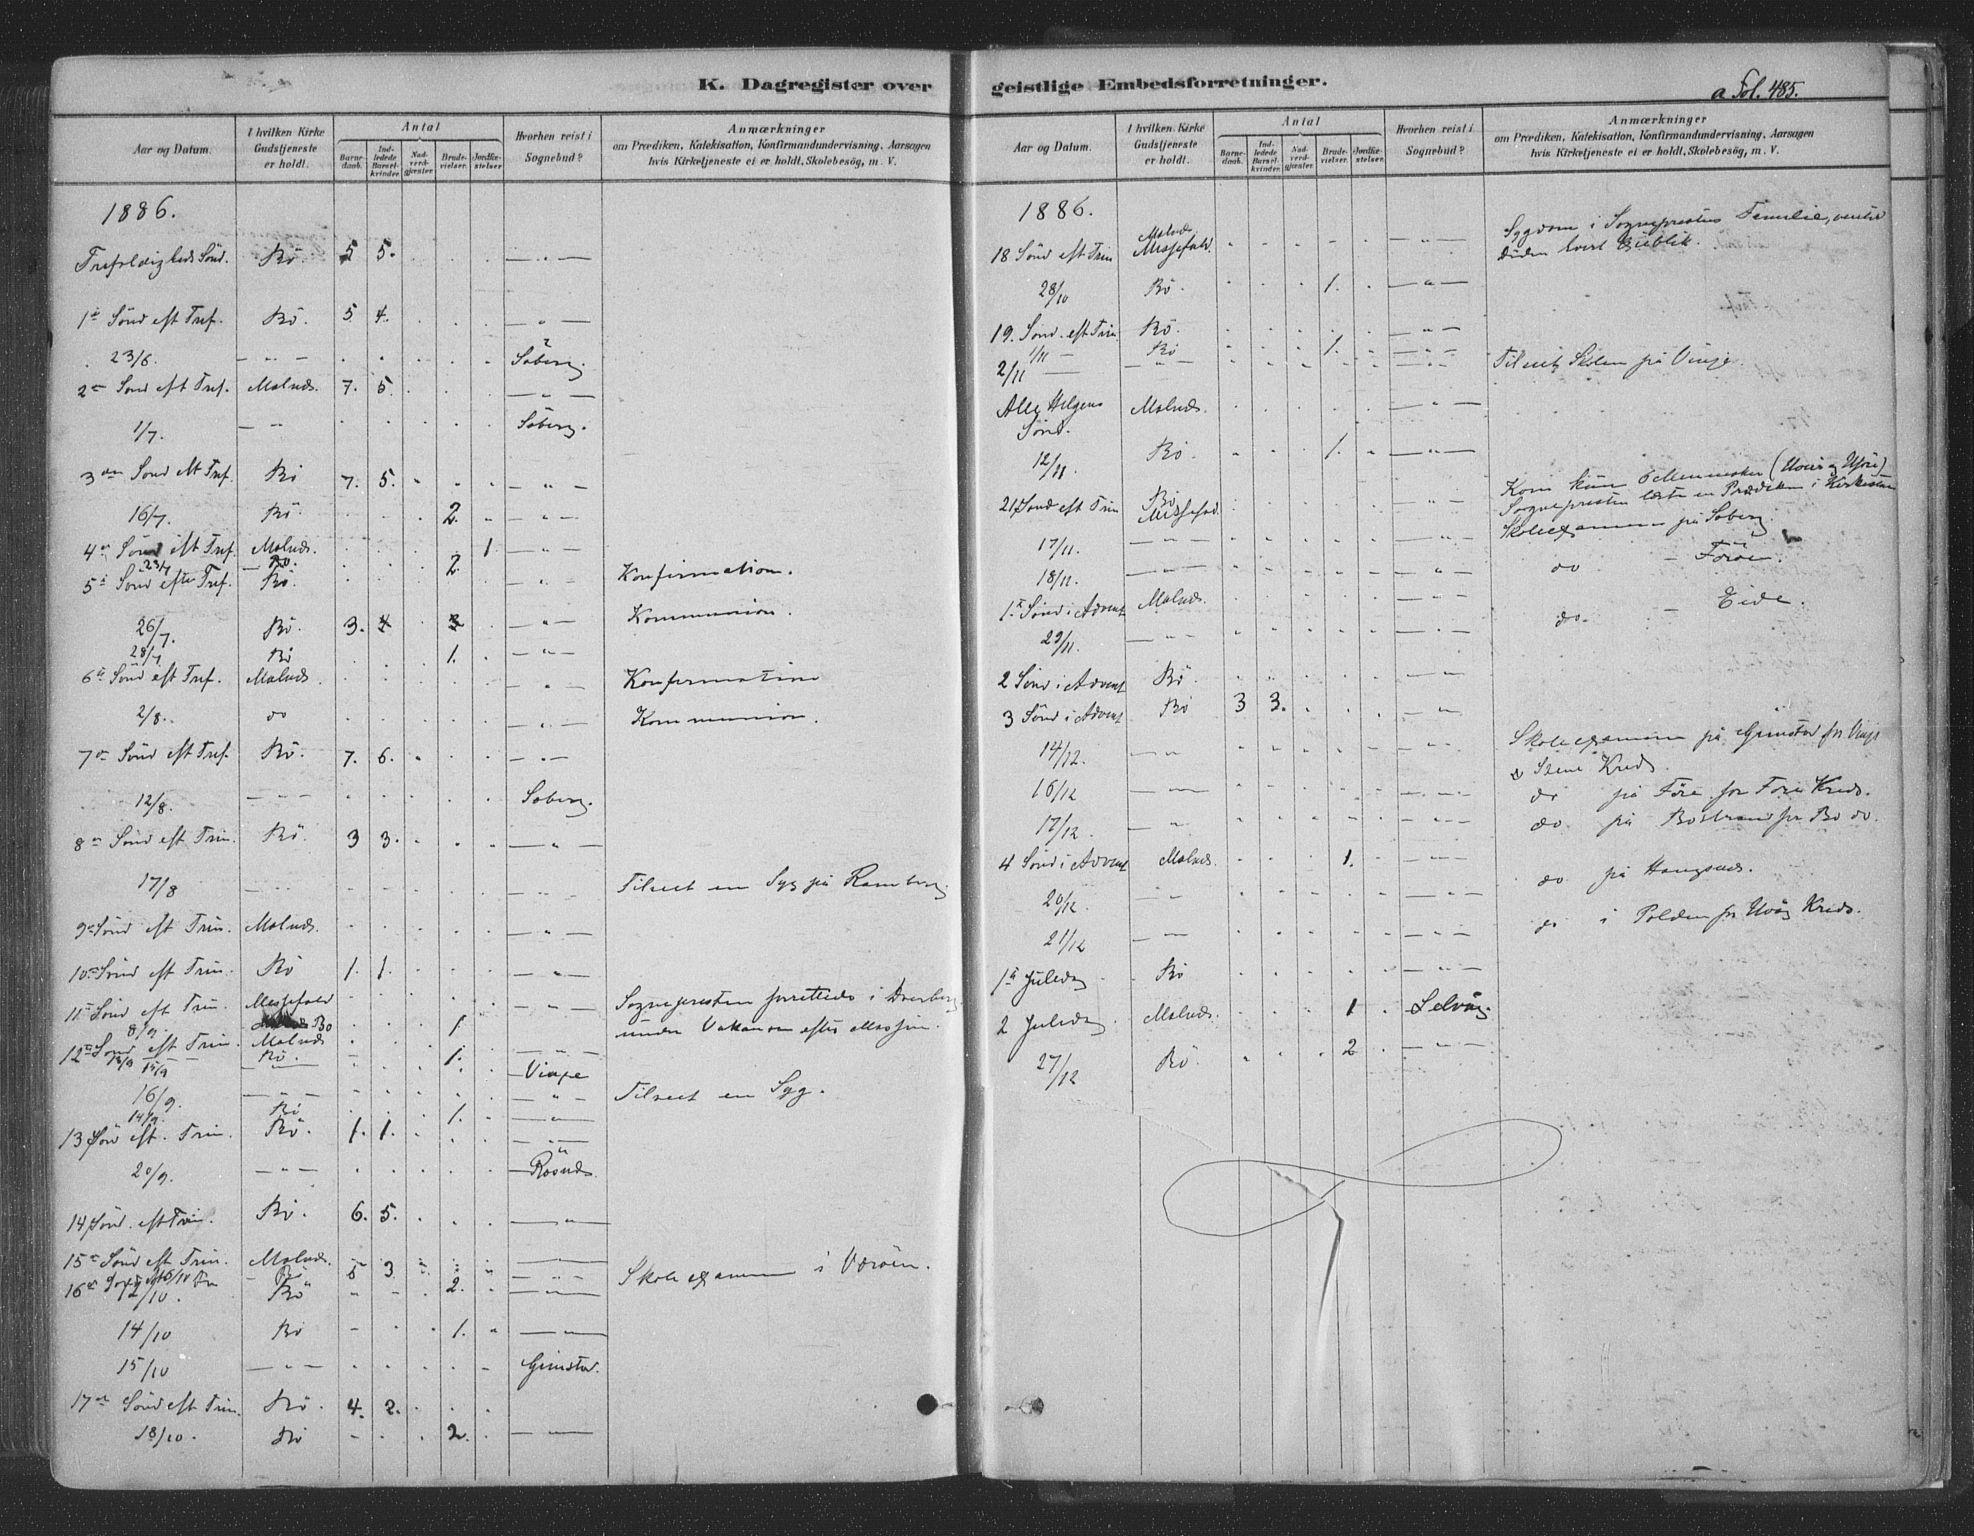 K. Dagregister over geistlige Embedsforretninger.
a Fol. 485.
Aar og Datum. I hvilken Kirke Gudstjeneste er holdt. Antal Barnedaab. Indledede Barselkvinder. Nadverdgjæster. Brudevielser. Jordfæstelser. Hvorhen reist i Sognebud? Anmærkninger om Prædiken, Katekisation, Konfirmandundervisning, Aarsagen hvis Kirketjeneste ei er holdt, Skolebesøg, m. V.
1886.
Trefoldigheds Sönd. Bö 5 5. — " —
1ste Sönd eft Tref. Bö. 5 4. — " —
23/6. — " — Söberg.
2en Sönd eft Tref. Malnes. 7. 5. — " —
1/7. — " Söberg.
3die Sönd eft Tref. Bö 7. 5. — " —
16/7. Bö. 2. — " —
4de Sönd eft Tref. Malnes. 1 — " —
23/7 Bö. 2.
5te Sönd efter Tref. Bö. — " — Konfirmation.
26/7. Bö. 3. 4 3 — " — Kommunion.
28/7 Bö 1. — " —
6te Sönd eft Tref. Malnes. " Konfirmation
2/8. do — " — Kommunion.
7de Sönd eft Tref. Bö. 7. 6. — " —
12/8. — " — Söberg.
8de Sönd eft Trin. Bö 3 3. — " —
17/8 — " — — " — Tilseet en Syg på Ramberg.
9de Sönd eft Trin. Malnes. — " —
10de Sönd eft Trin. Bö 1. 1. — " —
11te Sönd eft Trin. Messefald — " — Sognepresten forrettede i Dverberg
8/9. Bö 1. under Vakansen efter
12te Sönd eft Trin. Malnes — " —
Bö. 1. — " —
15/9 — " — Vinje
16/9. — " — — " — Tilseet en Syg.
14/9. Bö 1. — " —
13 Sön eft. Trin. Bö. 1. 1. — " —
20/9. — " — Rösnes.
14 Sönd. eft Trin. Bö. 6. 5. — " —
15de Sönd eft Trin. Malnes. — " —
16de Bö 5 3 — " — Skoleexamen i Væröen.
12/10. Bö 2. — " —
14/10 Bö 1. — " —
15/10 — " — Grimstad.
17de Sönd eft Trin. Bö. 4. 2.
18/10. Bö 2. — " —
Aar og Datum. I hvilken Kirke Gudstjeneste er holdt. Antal Barnedaab. Indledede Barselkvinder. Nadverdgjæster. Brudevielser. Jordfæstelser. Hvorhen reist i Sognebud? Anmærkninger om Prædiken, Katekisation, Konfirmandundervisning, Aarsagen hvis Kirketjeneste ei er holdt, Skolebesøg, m. V.
1886.
18 Sönd eft Trin Malnes. Messefald. — " — Sygdom i Sogneprestens Familie, ventet
Döden hvert Öieblik.
28/10 Bö. 1. — " —
19. Sönd. eft Trin Bö. — " —
1/11 — Bö 1. — " —
2/11 — — " — — " — Tilseet Skolen på Vinje.
Alle Helgens Sönd. Malnes. — " —
12/11. Bö. 1. — " —
21 Sönd eft Trin Bö Messefald. — " — Kom kun 6 Mennesker
Sognepresten læste en Prædiken i Kirkestuen
17/11. — " — — " — Skoleexamen på Söberg.
18/11. — " — — " — do — Föröen.
1ste Sönd i Advent Malnes. — " —
29/11. — " — — " — do. — Eide.
2 Sönd i Advent Bö. — " —
3 Sönd i Advent Bö 3 3. — " —
14/12. — " — — " — Skoleexamen på Grimstad for Vinje
& Steine Kreds.
16/12 — " — — " — do på Före for Före Kreds.
17/12. — " — — " — do. på Böstrand for Bö do.
4 Sönd i Advent Malnes. 1. — " —
20/12 — " — — " — do på Haugsnes.
21/12 — " — — " — do i Polden for Uvåg Kreds.
1ste Juledag Bö — " —
2 Juledag Malnes. 1 Selvåg.
27/12 Bö. 2 — " —